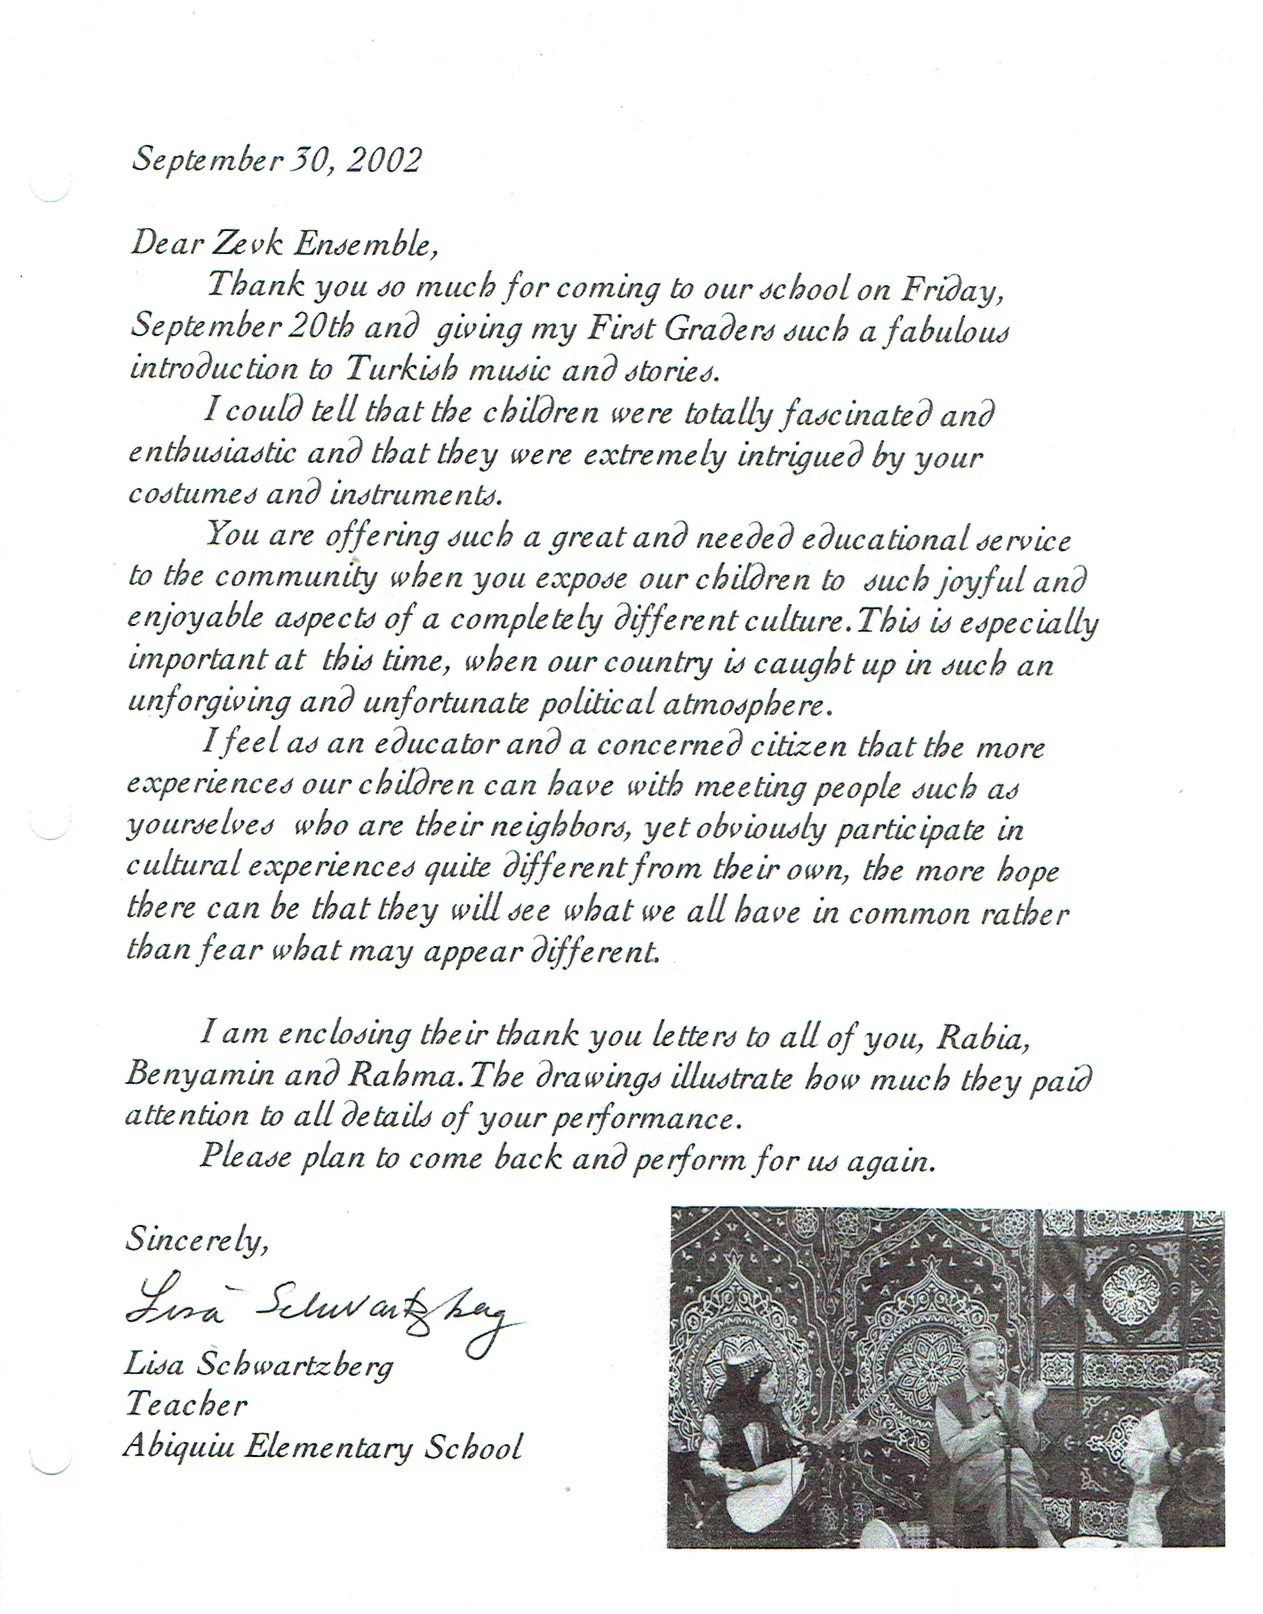 September 30, 2002
Dear Zevk Ensemble,
Thank you so much for coming to our school on Friday,
September 20th and giving my First Graders such a fabulous
introduction to Turkish music and stories.
I could tell that the children were totally fascinated and
enthusiastic and that they were extremely intrigued by your
costumes and instruments.
You are offering such a great and needed educational service
to the community when you expose our children to such joyful and
enjoyable aspects of a completely different culture. This is especially
important at this time, when our country is caught up in such an
unforgiving and unfortunate political atmosphere.
I feel as an educator and a concerned citizen that the more
experiences our children can have with meeting people such as
yourselves who are their neighbors, yet obviously participate in
cultural experiences quite different from their own, the more hope
there can be that they will see what we all have in common rather
than fear what may appear different.
I am enclosing their thank you letters to all of you, Rabia,
Benyamin and Rahma. The drawings illustrate how much they paid
attention to all details of your performance.
Please plan to come back and perform for us again.
Sincerely,
Lisa Schwartzberg
Lisa Schwartzberg
Teacher
Abiquiu Elementary School